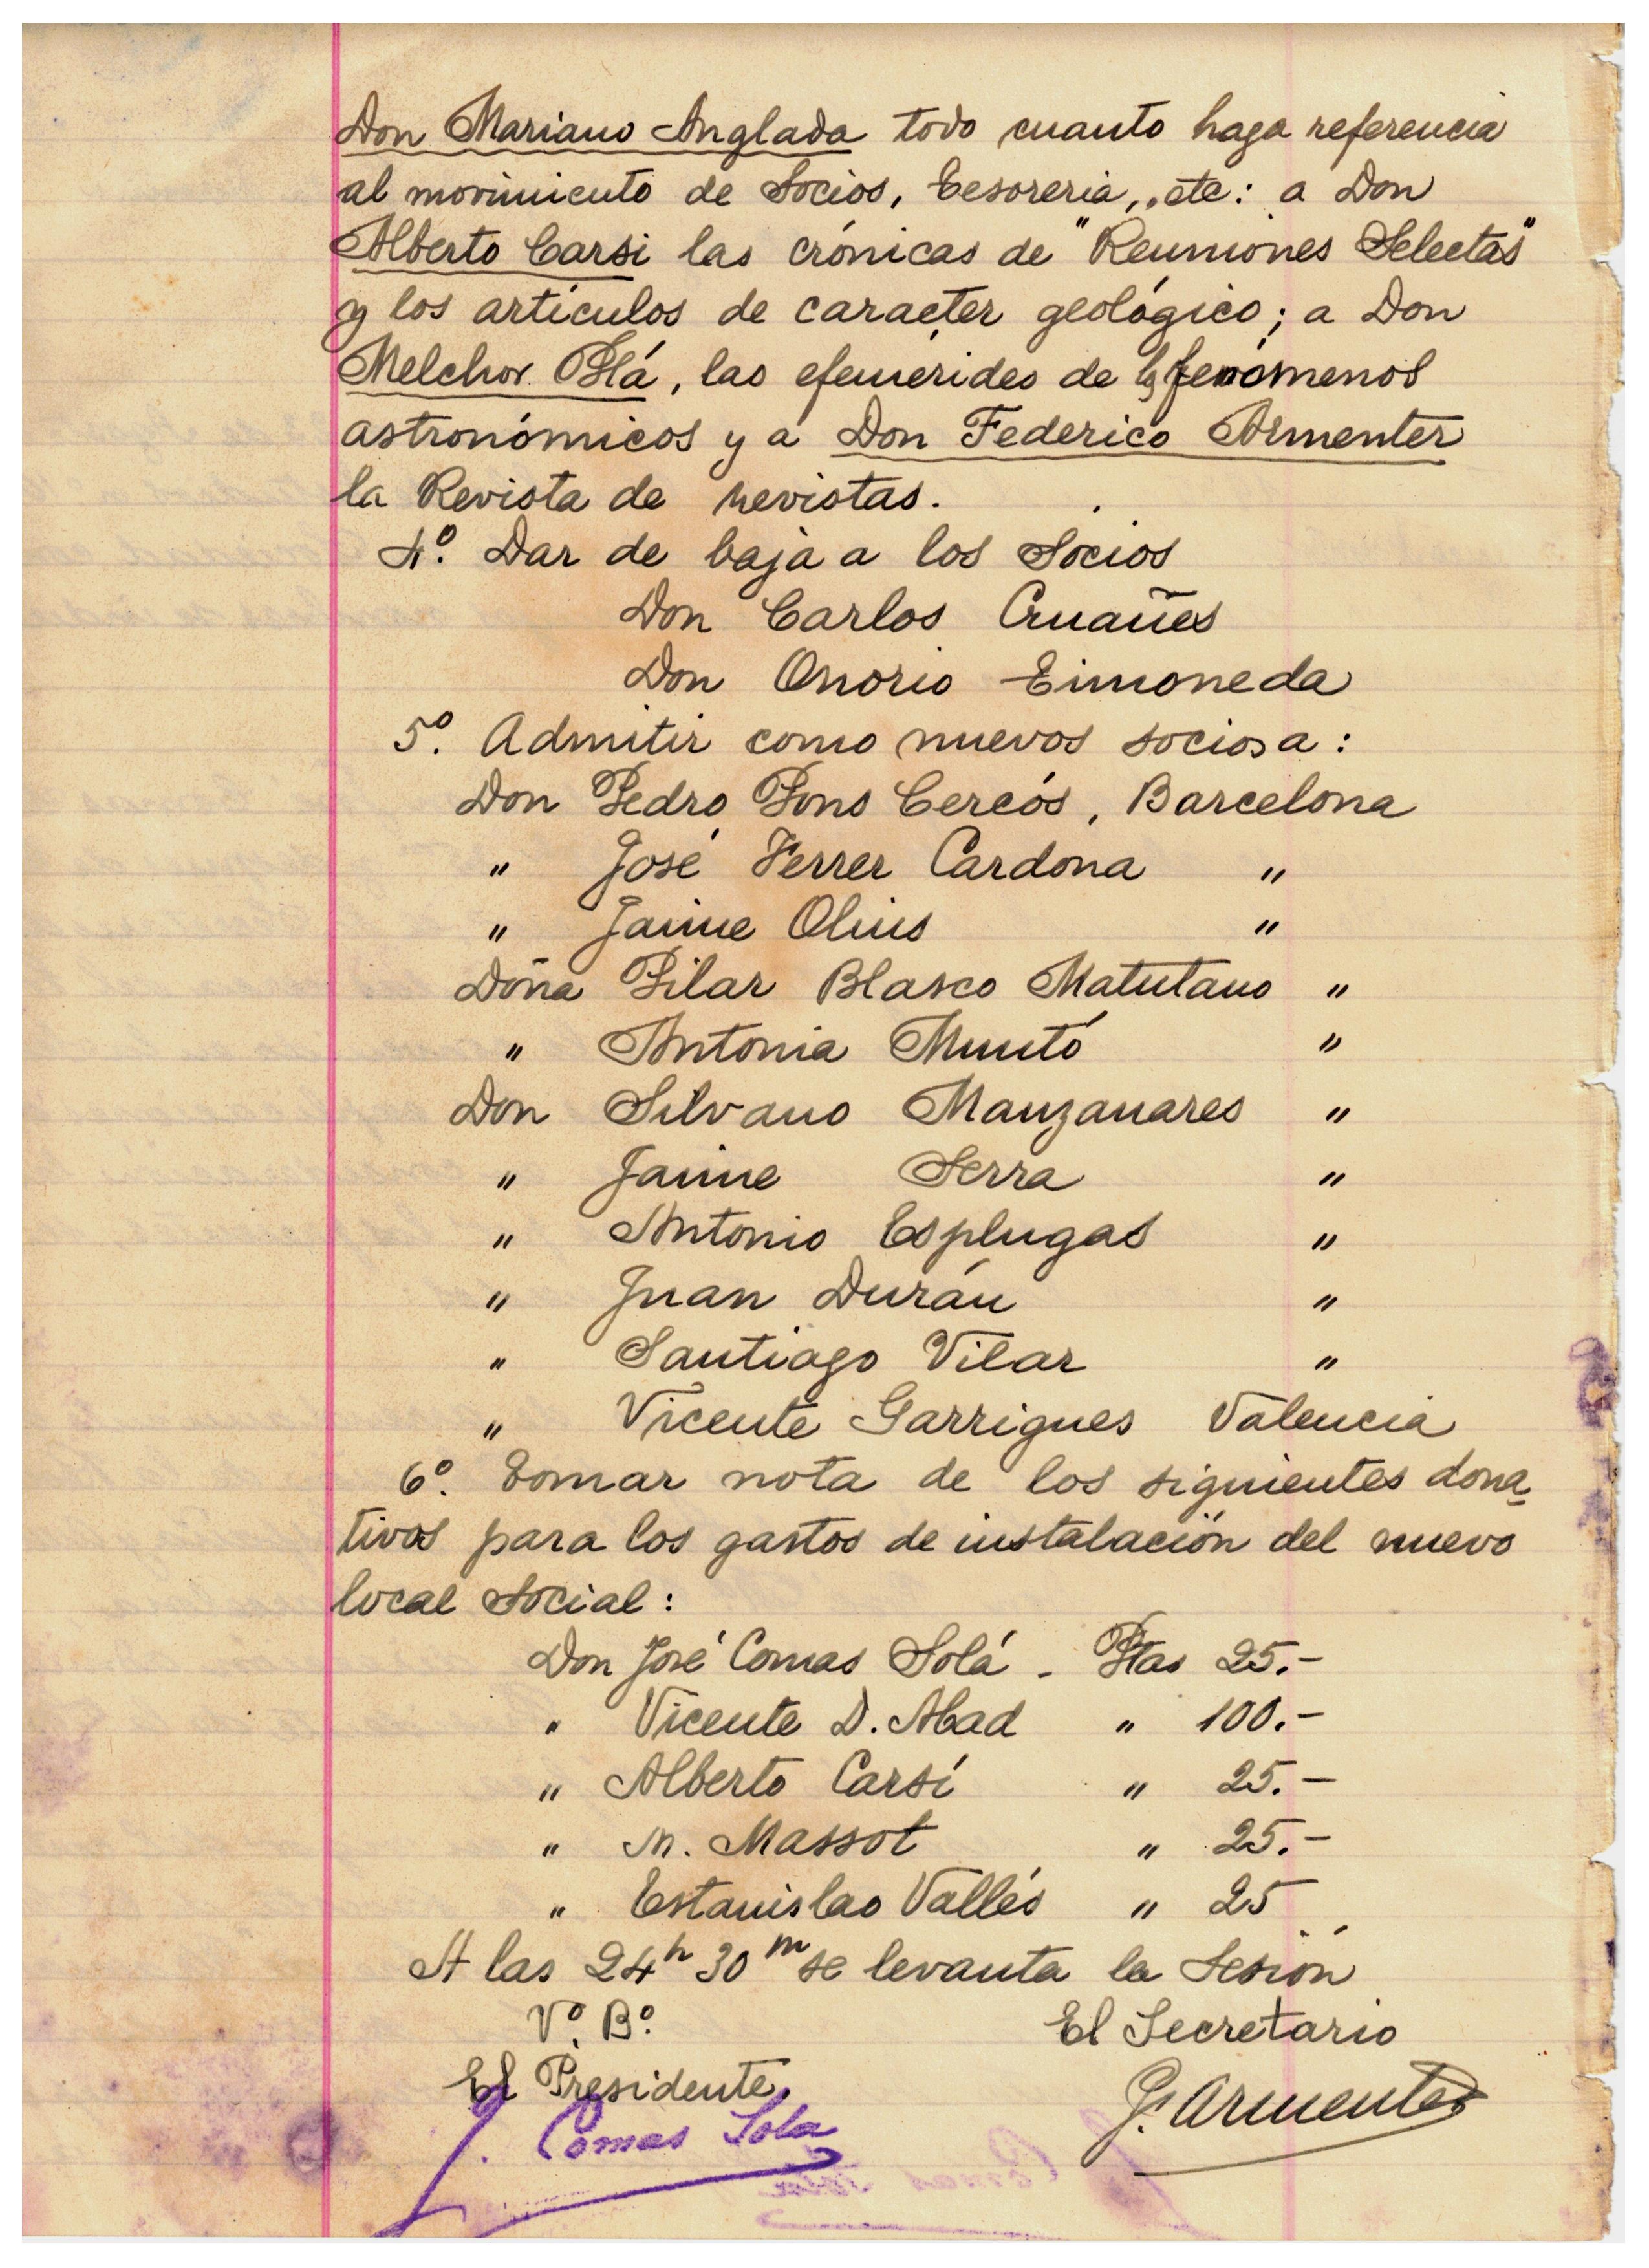 Don Mariano Anglada todo cuanto haga referencia
al movimiento de Socios, Tesoreria, etc: a Don
Alberto Carsi las crónicas de "Reuniones Selectas"
y los artículos de caracter geológico; a Don
Melchor Plá, las efemérides de los fenómenos
astronómicos y a Don Federico Armenter
la Revista de revistas.
4º. Dar de baja a los Socios
Don Carlos Cruañes
Don Onorio Timoneda
5º. Admitir como nuevos socios a:
Don Pedro Pons Cercós, Barcelona
" José Ferrer Cardona "
" Jaime Olius "
Doña Pilar Blasco Matutano "
" Antonia Muntó "
Don Silvano Manzanares "
" Jaime Serra "
" Antonio Esplugas "
" Juan Durán "
" Santiago Vilar "
" Vicente Garrigues Valencia
6º. Tomar nota de los siguientes dona-
tivos para los gastos de instalación del nuevo
local Social:
Don José Comas Solá - Ptas 25.-
" Vicente D. Abad " 100.-
" Alberto Carsí " 25.-
" M. Massot " 25.-
" Estanislao Vallés " 25
A las 24h 30m se levanta la Sesión
Vº. Bº. El Secretario
El Presidente,
J. Comas Solá F. Armenter